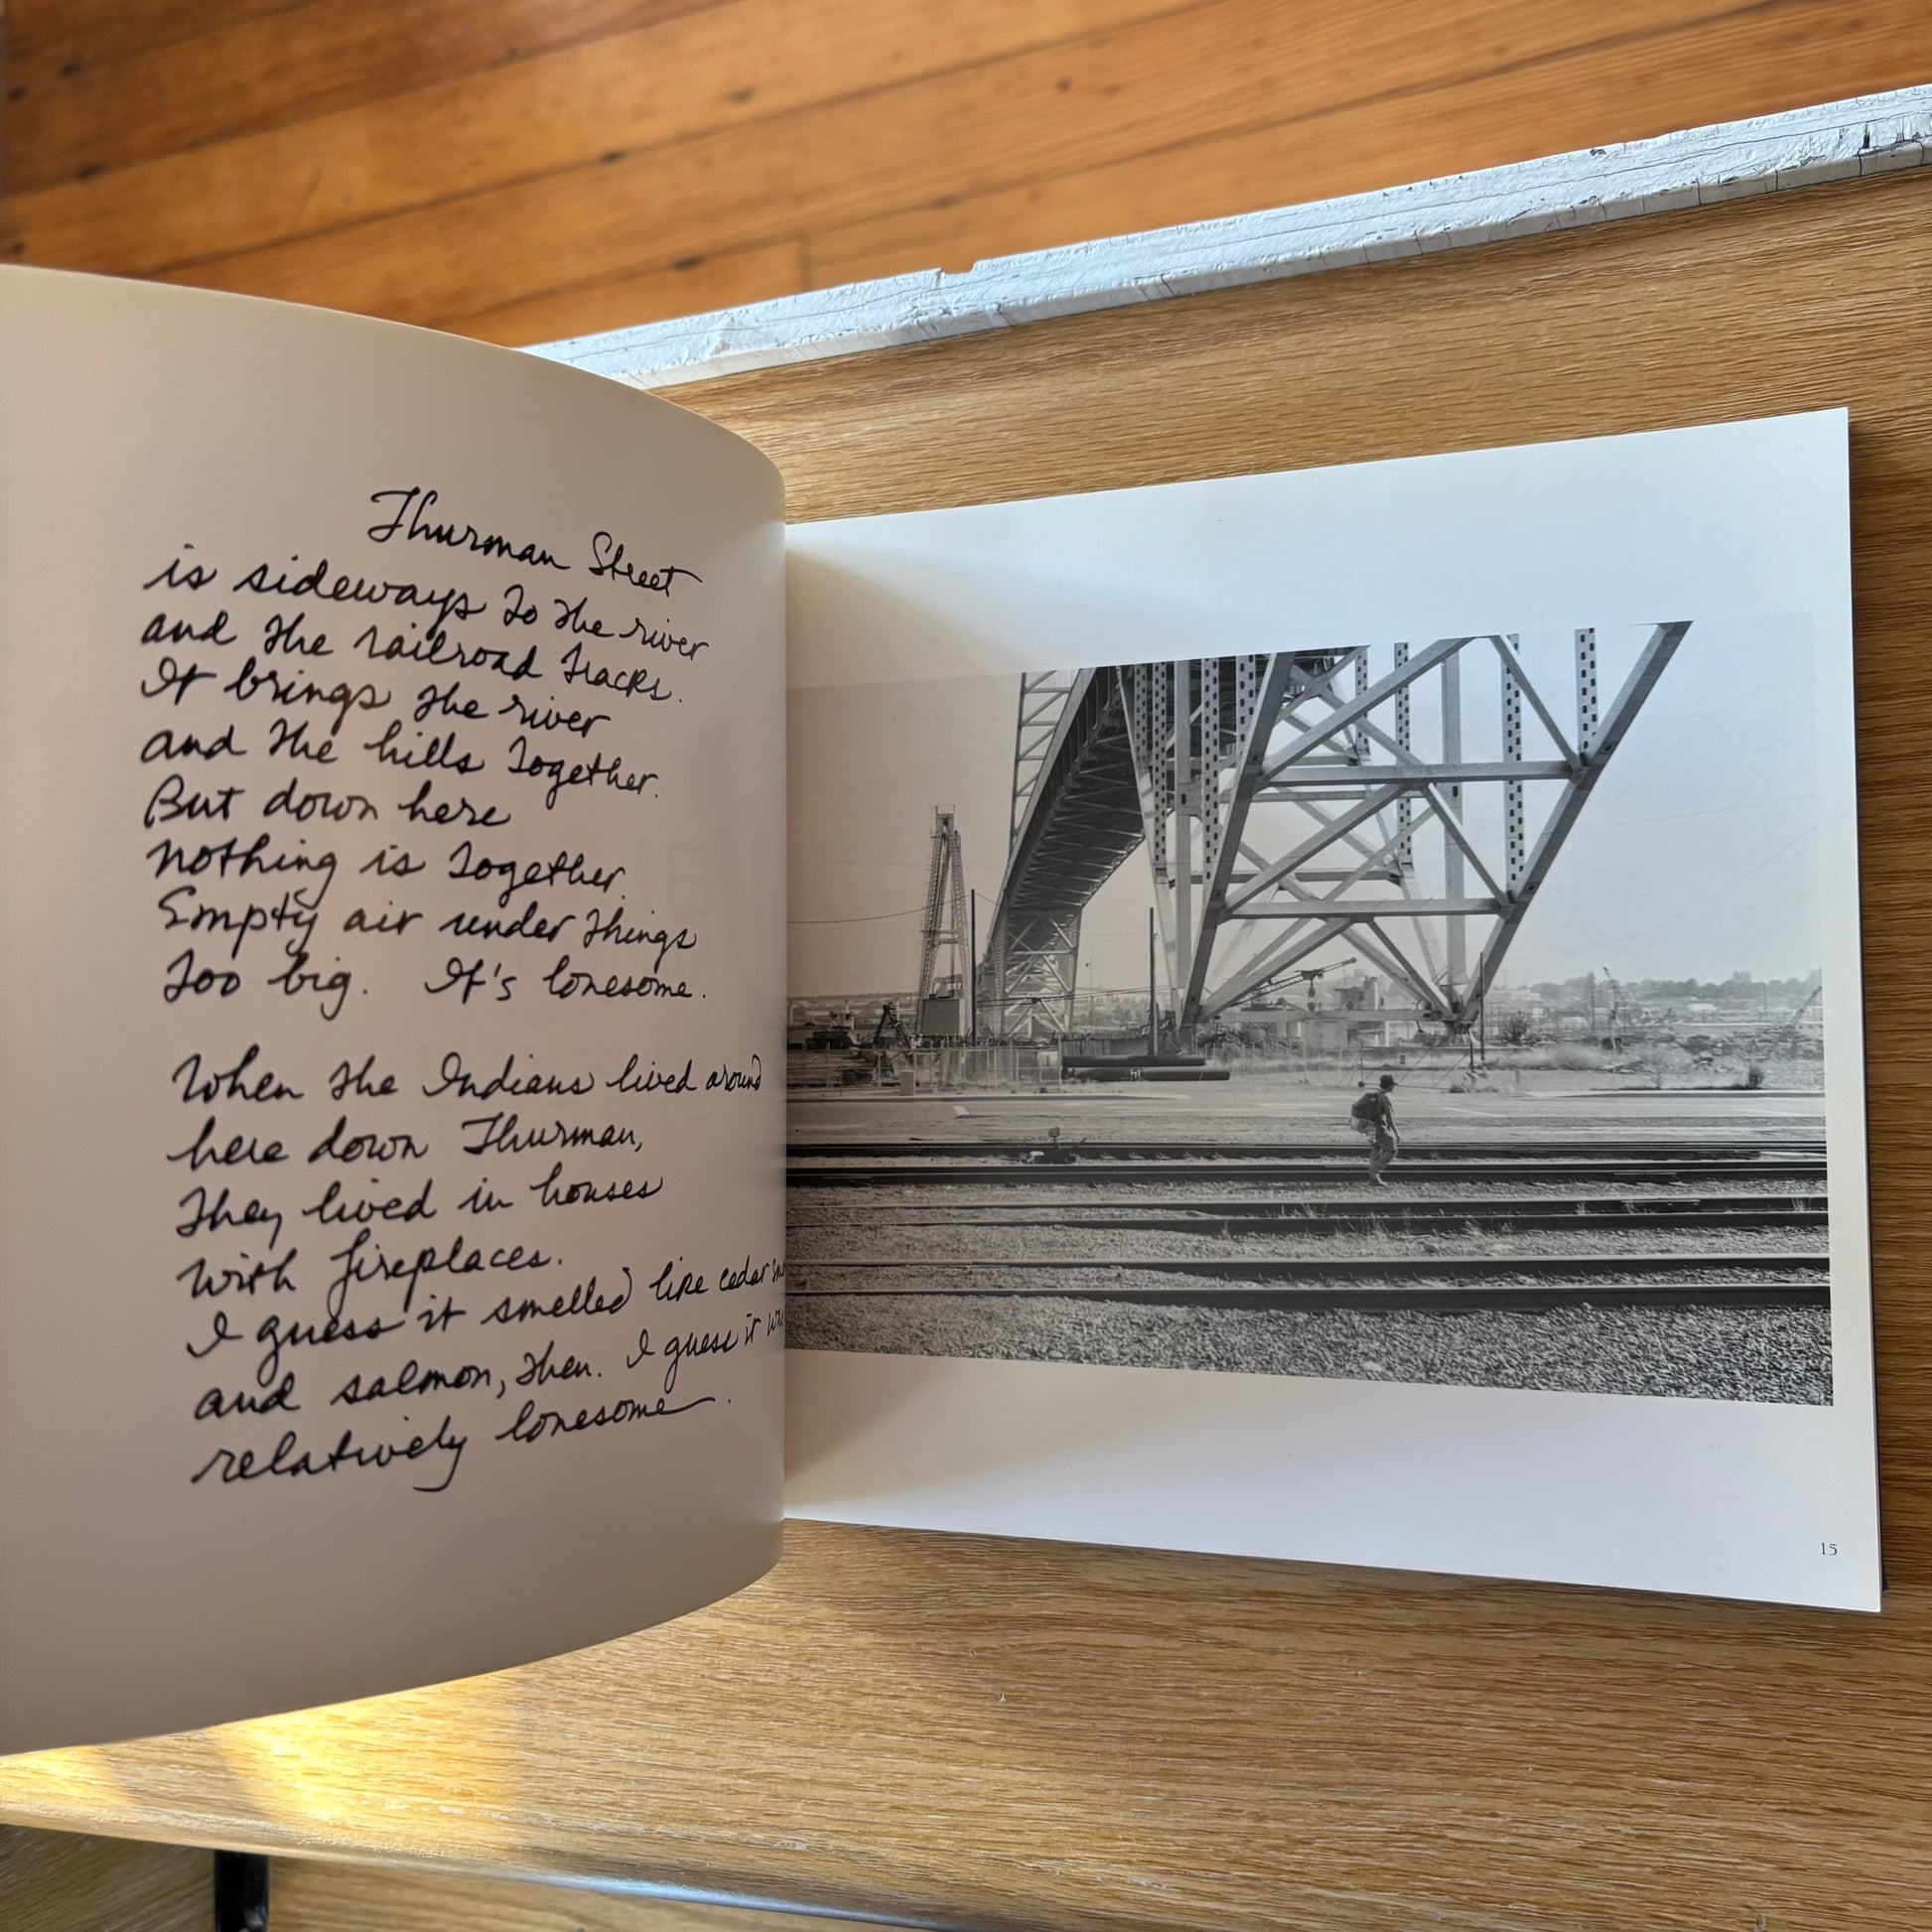 Thurman Street
is sideways to the river
and the railroad tracks.
It brings the river
and the hills together.
But down here
nothing is together.
Empty air under things
too big. It's lonesome.
When the Indians lived around
here down Thurman,
they lived in houses
with fireplaces.
I guess it smelled like cedar
and salmon, then. I guess it
relatively lonesome.
15